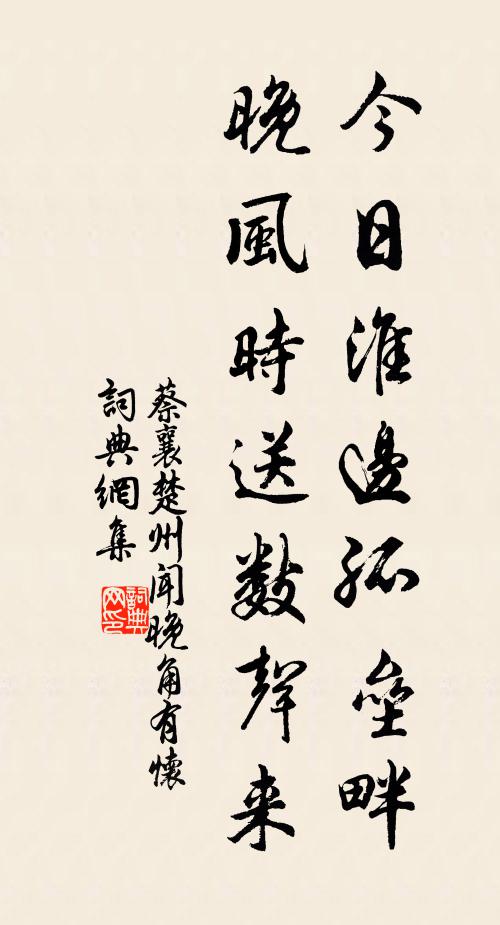 今日淮邊孤壘畔
晚風時送數聲来
蔡襄楚州聞晚角有懷
詞典網集
詞典网印